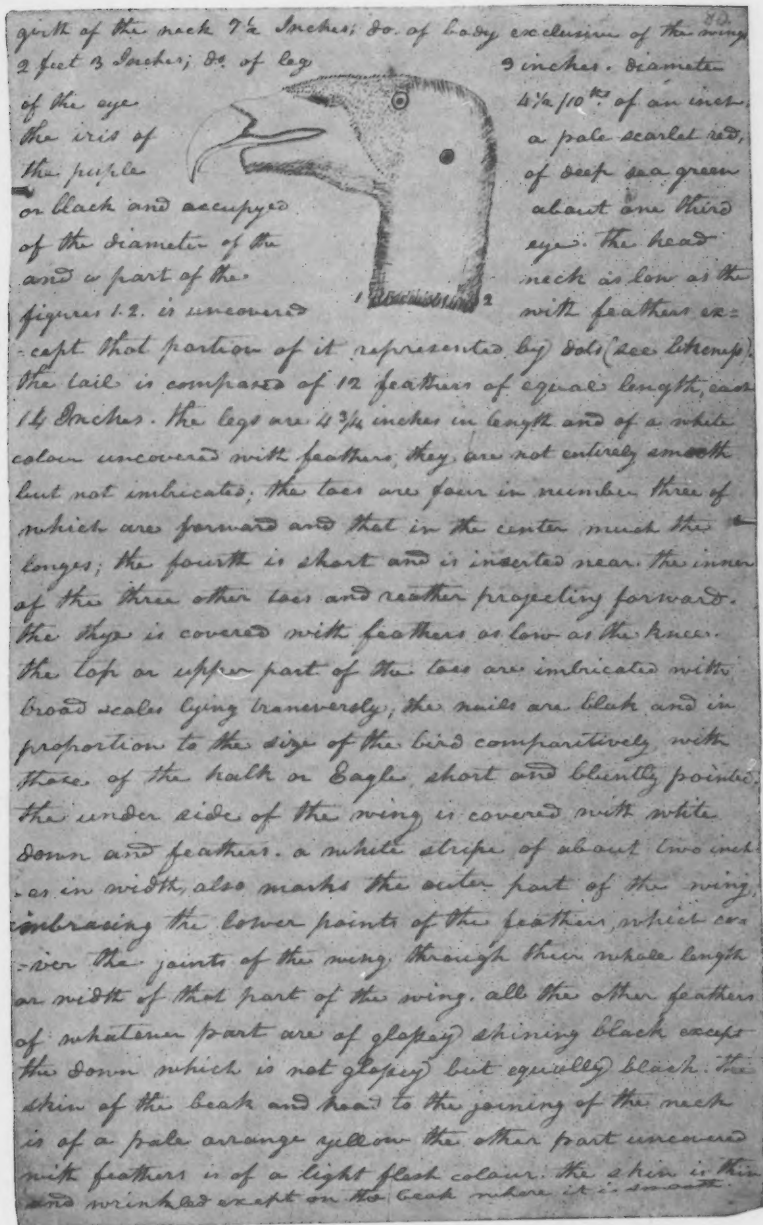 80.
girth of the neck 7½ Inches; do. of body exclusive of the wings
2 feet 3 Inches; do. of leg 3 inches. diameter
of the eye 4½/10ths of an inch,
the iris of a pale scarlet red,
the puple of deep sea green
or black and occupyed about one third
of the diameter of the eye. the head
and a part of the neck as low as the
figures 1.2. is uncovered with feathers ex=
1 2
-cept that portion of it represented by dots (see likeness).
the tail is composed of 12 feathers of equal length, each
14 Inches. the legs are 4¾ inches in length and of a white
colour uncovered with feathers, they are not entirely smooth
but not imbricated; the toes are four in number three of
which are forward and that in the center much the
longes; the fourth is short and is inserted near the inner
of the three other toes and reather projecting forward.
the thye is covered with feathers as low as the knee.
the top or upper part of the toes are imbricated with
broad scales lying transversly; the nails are blak and in
proportion to the size of the bird comparitively with
those of the halk or Eagle, short and bluntly pointed.
the under side of the wing is covered with white
down and feathers. a white stripe of about two inch-
-es in width, also marks the outer part of the wing,
imbracing the lower points of the feathers, which co=
=ver the joints of the wing through their whole length
or width of that part of the wing. all the other feathers
of whatever part are of glossey shining black except
the down which is not glossey but equally black. the
skin of the beak and head to the joining of the neck
is of a pale orrange yellow the other part uncovered
with feathers is of a light flesh colour. the skin is thin
and wrinkled except on the beak where it is smooth